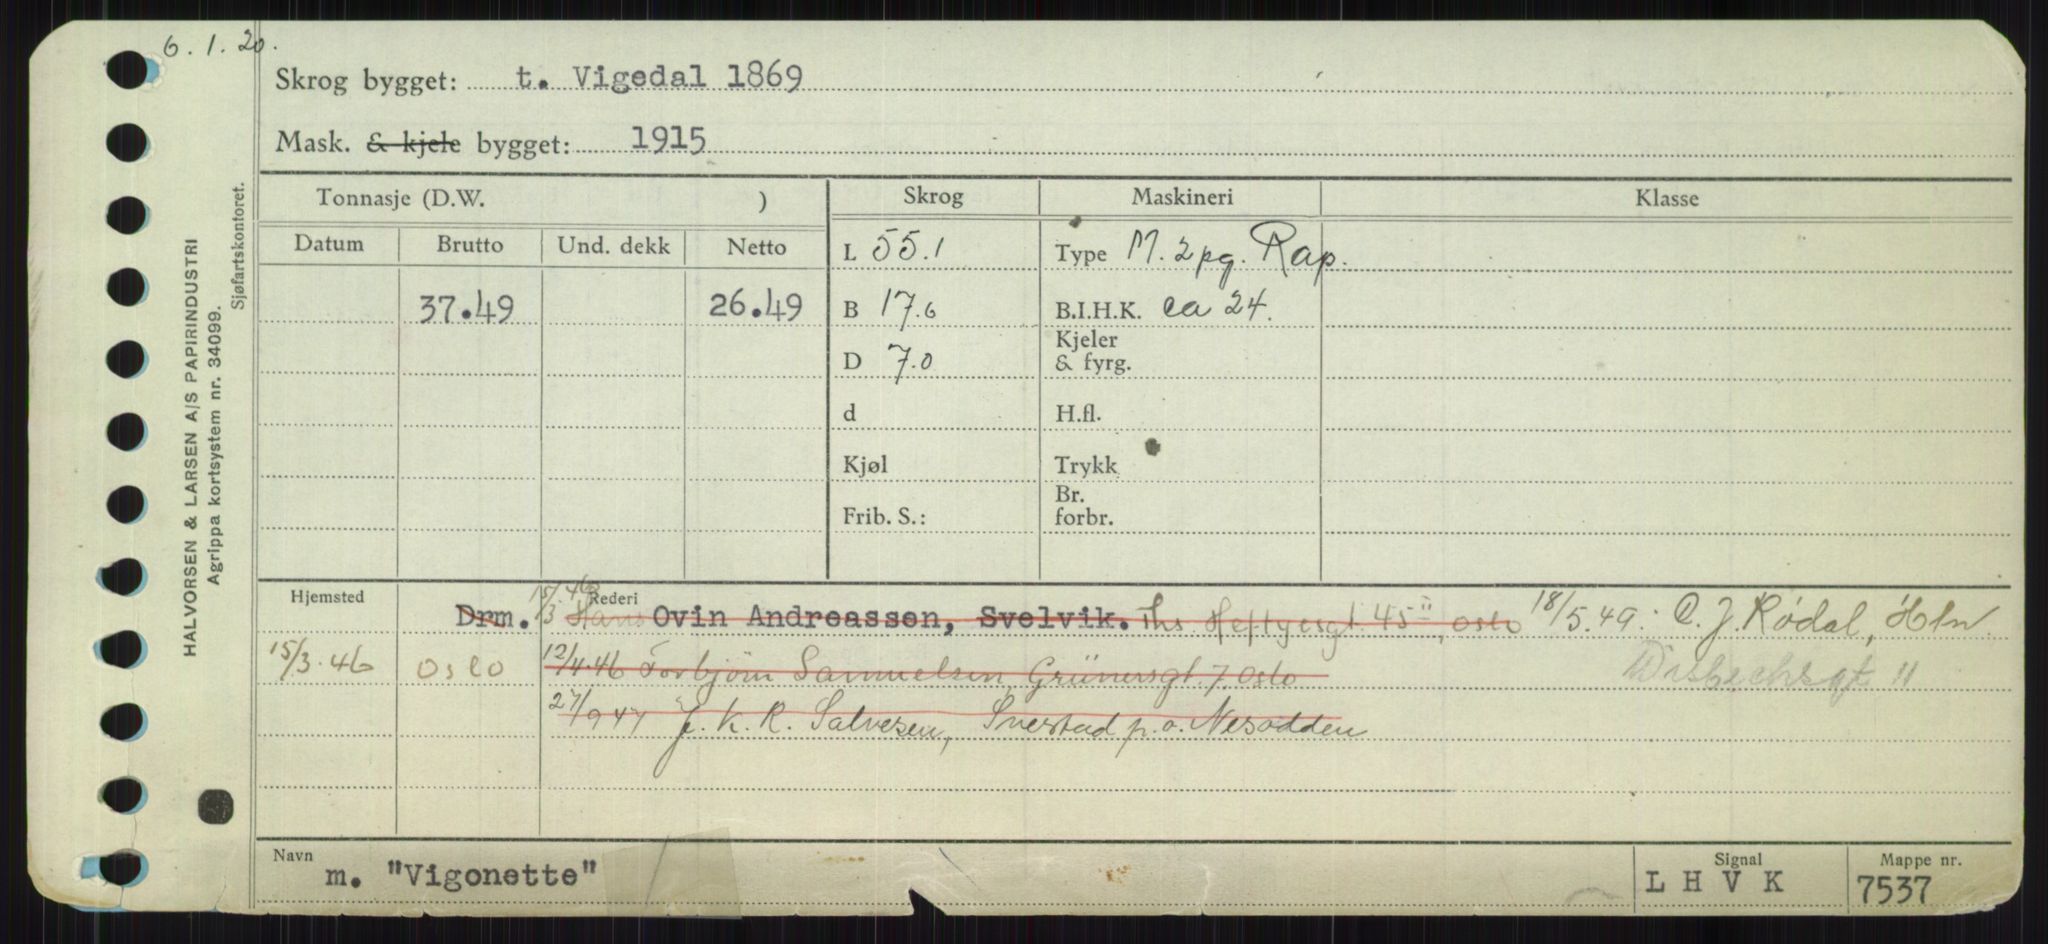 6.1.20.
Skrog bygget: t. Vigedal 1869
Mask. & kjele bygget: 1915
HALVORSEN & LARSEN A/S PAPIRINDUSTRI
Agrippa kortsystem nr. 34099.
Sjøfartskontoret.
Tonnasje (D.W. )
Datum Brutto Und. dekk Netto
37.49 26.49
Skrog
L 55.1
B 17.6
D 7.0
d
Kjøl
Frib. S.:
Maskineri
Type M. 2 pg. Rap.
B.I.H.K. ca 24.
Kjeler
& fyrg.
H.fl.
Trykk
Br.
forbr.
Klasse
Hjemsted
Rederi
Drm. 15/3.46 Hans Ovin Andreassen, Svelvik. Ths Heftyesgt. 45 II, Oslo 18/5.49. O. J. Rødal, Hln
15/3.46 Oslo 12/4.46 Torbjörn Samuelsen Grünersgt. 7. Oslo
27/9 47 J. K. R. Salvesen, Svestad p.o. Nesodden
Navn
m. "Vigonette"
Signal
LHVK
Mappe nr.
7537